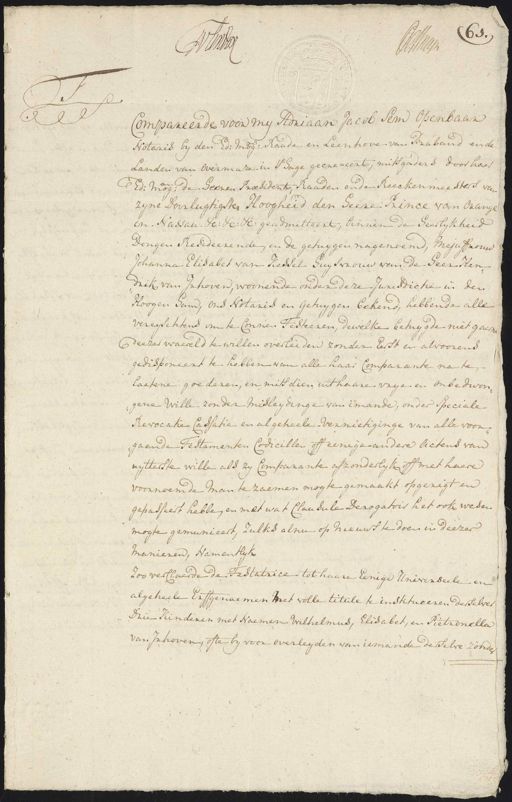 63.
Compareerde voor my Adriaan Jacob Pem openbaar
Notaris by den Ed: Mog: Raade en Leenhove van Braband en de
Landen van Overmaze in 's Hage gecreeert, mitsgaders door haar
Ed: Mog: de Heeren President, Raaden ende Reeckenmeesters van
zyne Doorlugtigste Hoogheid den Heere Prince van Orange
en Nassau &c &c &c geadmitteert, binnen de Heerlykheid
Dongen Resideerende, en de getuygen nagenoemd, Mejuffrouw
Johanna Elisabet van Hessel Huysvrouw van de Heer Hen-
drik van Inhoven, woonende onder deze Jurisdictie in den
Hoogen Ham, ons Notaris en getuygen bekend, hebbende alle
vereyschtens om te Connen Testeeren, dewelke betuygde niet gaarn
deeze waereld te willen overleiden zonder Eerst en alvoorens
gedisponeert te hebben van alle haar Comparante na te
laatene goederen, en mitsdien uit haare vrye en onbedwon-
gene Wille zonder misleydinge van iemande, onder speciale
Revocatie Cassatie en algeheele vernietiginge van alle voor-
gaande Testamenten Codicille off eenige andere Actens van
uytterste wille als zy Comparante afzonderlyk off met haare
voornoemde Man te zaemen mogte gemaakt opgeregt en
gepasseert hebbe, en met wat Clausule Derogatoir het ook weder
mogte gemunieert, zulks als nu op Nieuws te doen in deezer
manieren, Namentlyk
Zoo verklaerde de Testatrice tot haare Eenige Universeele en
algeheele Erffgenaemen met volle titule te institueeren deszelver
Drie Kinderen met Naemen Wilhelmus, Elisabet, en Pietronella
van Inhoven, ofte by voor overleyden van iemande deselve zonder